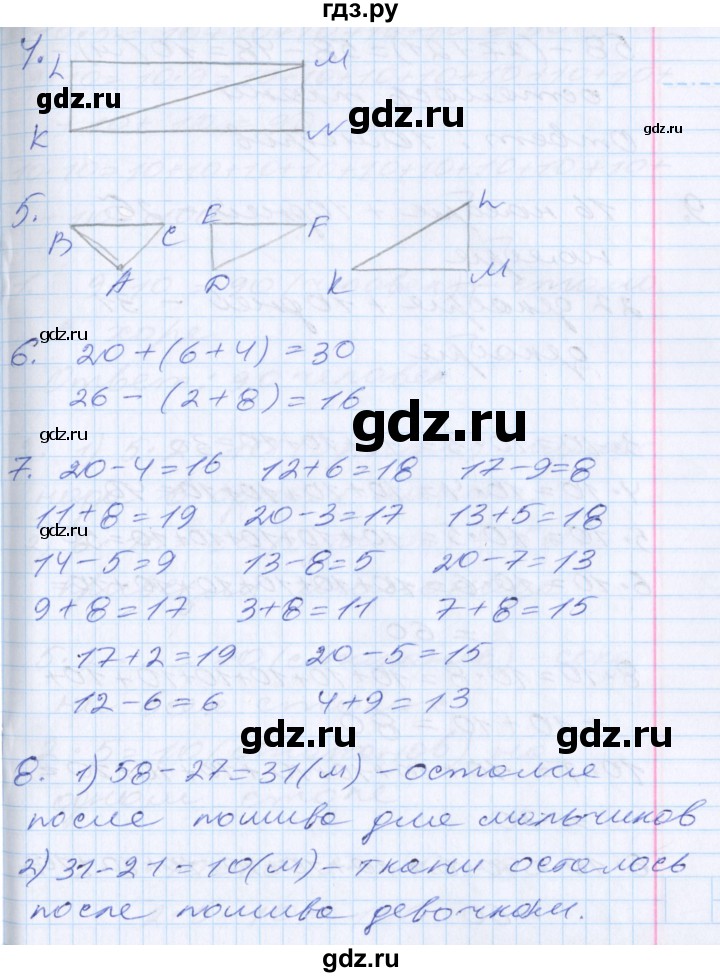 гдз.ру
4.
L M
gdz.ru
gdz.ru
gdz.ru
K N
5.
B C E F L
A D K M
gdz.ru
6. 20+(6+4)=30
26-(2+8)=16
gdz.ru
7. 20-4=16 12+6=18 17-9=8
11+8=19 20-3=17 13+5=18
gdz.ru
14-5=9 13-8=5 20-7=13
9+8=17 3+8=11 7+8=15
17+2=19 20-5=15
12-6=6 4+9=13
gdz.ru
gdz.ru
8. 1) 58-27=31(м) - осталось
после пошива для мальчиков
2) 31-21=10(м) - ткани осталось
после пошива девочкам.
gdz.ru
gdz.ru